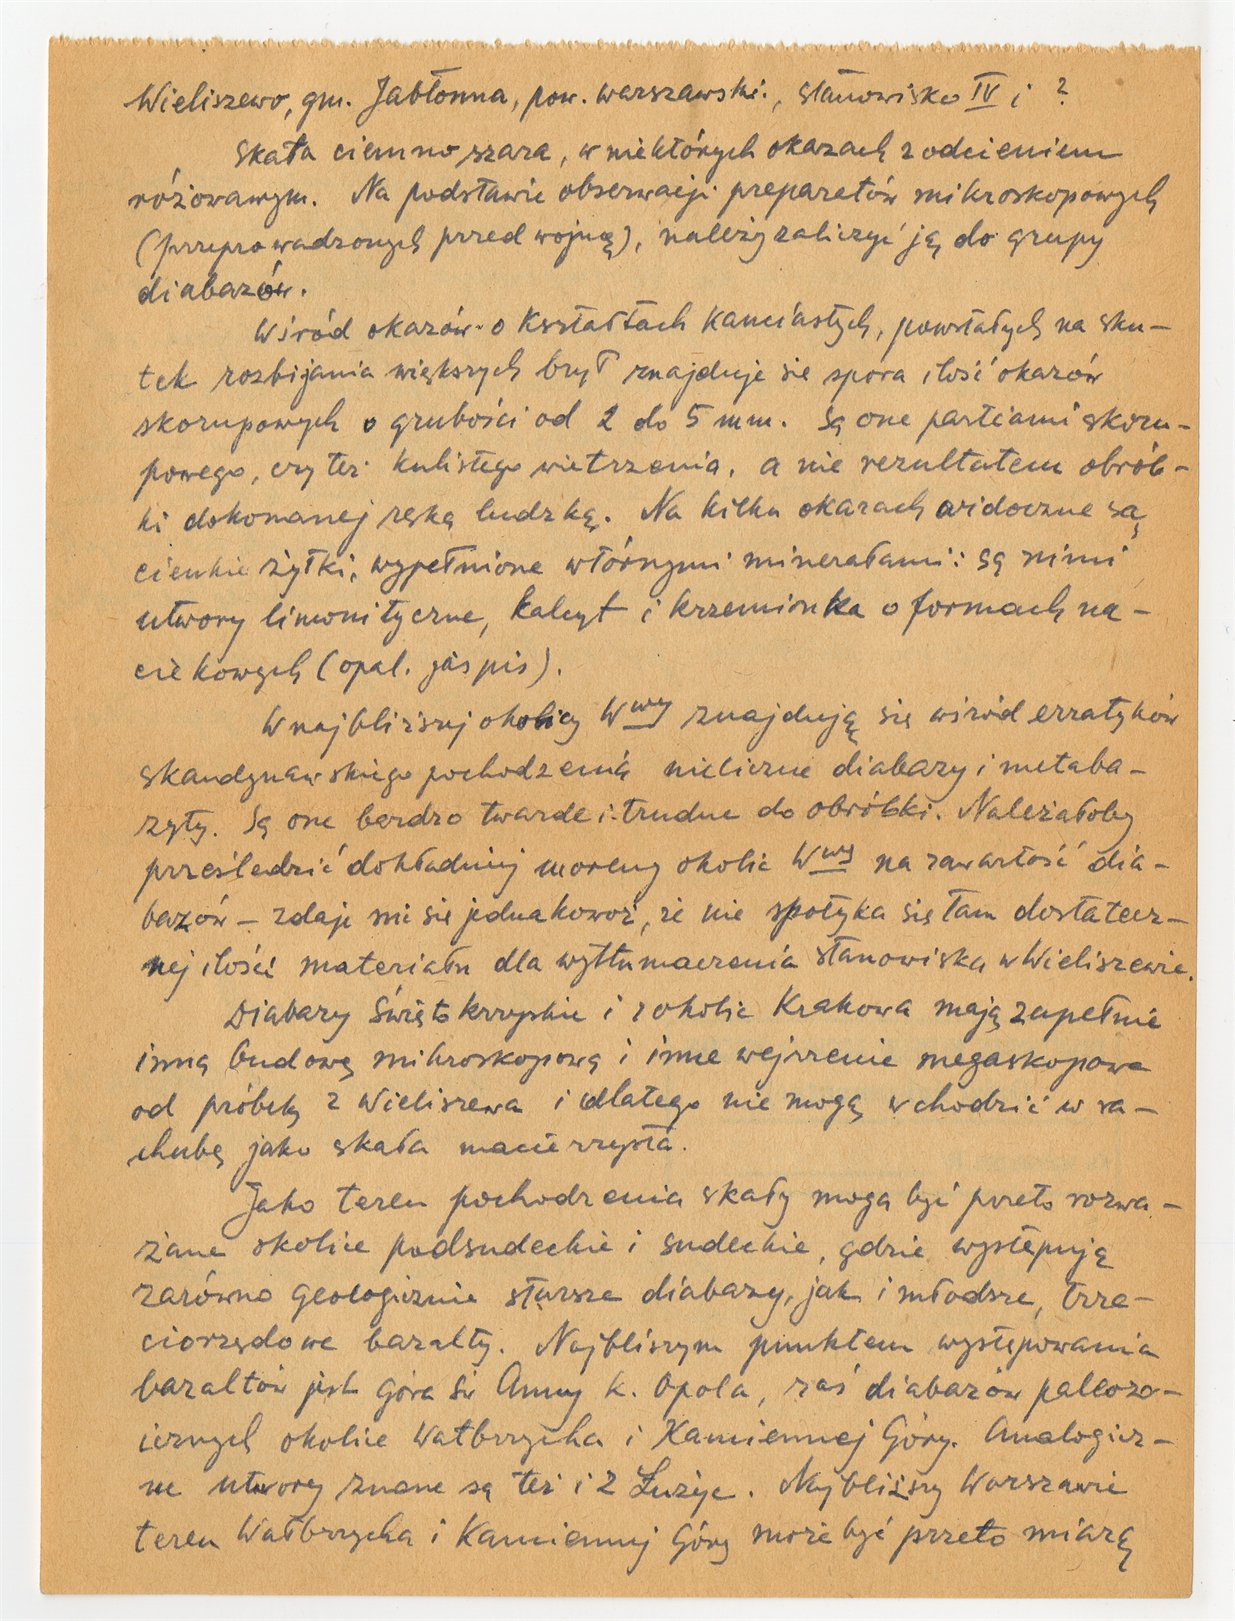 Wieliszewo, gm. Jabłonna, pow. warszawski., stanowisko IV i ?
Skała ciemno szara, w niektórych okazach z odcieniem
różowawym. Na podstawie obserwacji preparatów mikroskopowych
(przeprowadzonych przed wojną), należy zaliczyć ją do grupy
diabazów.
Wśród okazów o kształtach kanciastych, powstałych na sku-
tek rozbijania większych brył znajduje się spora ilość okazów
skorupowych o grubości od 2 do 5 mm. Są one partiami skoru-
powego, czy też kulistego wietrzenia, a nie rezultatem obrób-
ki dokonanej ręką ludzką. Na kilku okazach widoczne są
cienkie żyłki, wypełnione wtórnymi minerałami: są nimi
utwory limonityczne, kalcyt i krzemionka o formach na-
ciekowych (opal. jaspis).
W najbliższej okolicy Wwy znajdują się wśród erratyków
skandynawskiego pochodzenia nieliczne diabazy i metaba-
zyty. Są one bardzo twarde i trudne do obróbki. Należałoby
prześledzić dokładniej moreny okolic Wwy na zawartość dia-
bazów – zdaje mi się jednakowoż, że nie spotyka się tam dostatecz-
nej ilości materiału dla wytłumaczenia stanowiska w Wieliszewie.
Diabazy Świętokrzyskie i z okolic Krakowa mają zupełnie
inną budowę mikroskopową i inne wejrzenie megaskopowe
od próbek z Wieliszewa i dlatego nie mogą wchodzić w ra-
chubę jako skała macierzysta.
Jako teren pochodzenia skały mogą być przeto rozwa-
żane okolice podsudeckie i sudeckie, gdzie występują
zarówno geologicznie starsze diabazy, jak i młodsze, trze-
ciorzędowe bazalty. Najbliższym punktem występowania
bazaltów jest Góra Św Anny k. Opola, zaś diabazów paleozo-
icznych okolice Wałbrzycha i Kamiennej Góry. Analogicz-
ne utwory znane są też i z Łużyc. Najbliższy Warszawie
teren Wałbrzycha i Kamiennej Góry może być przeto miarą